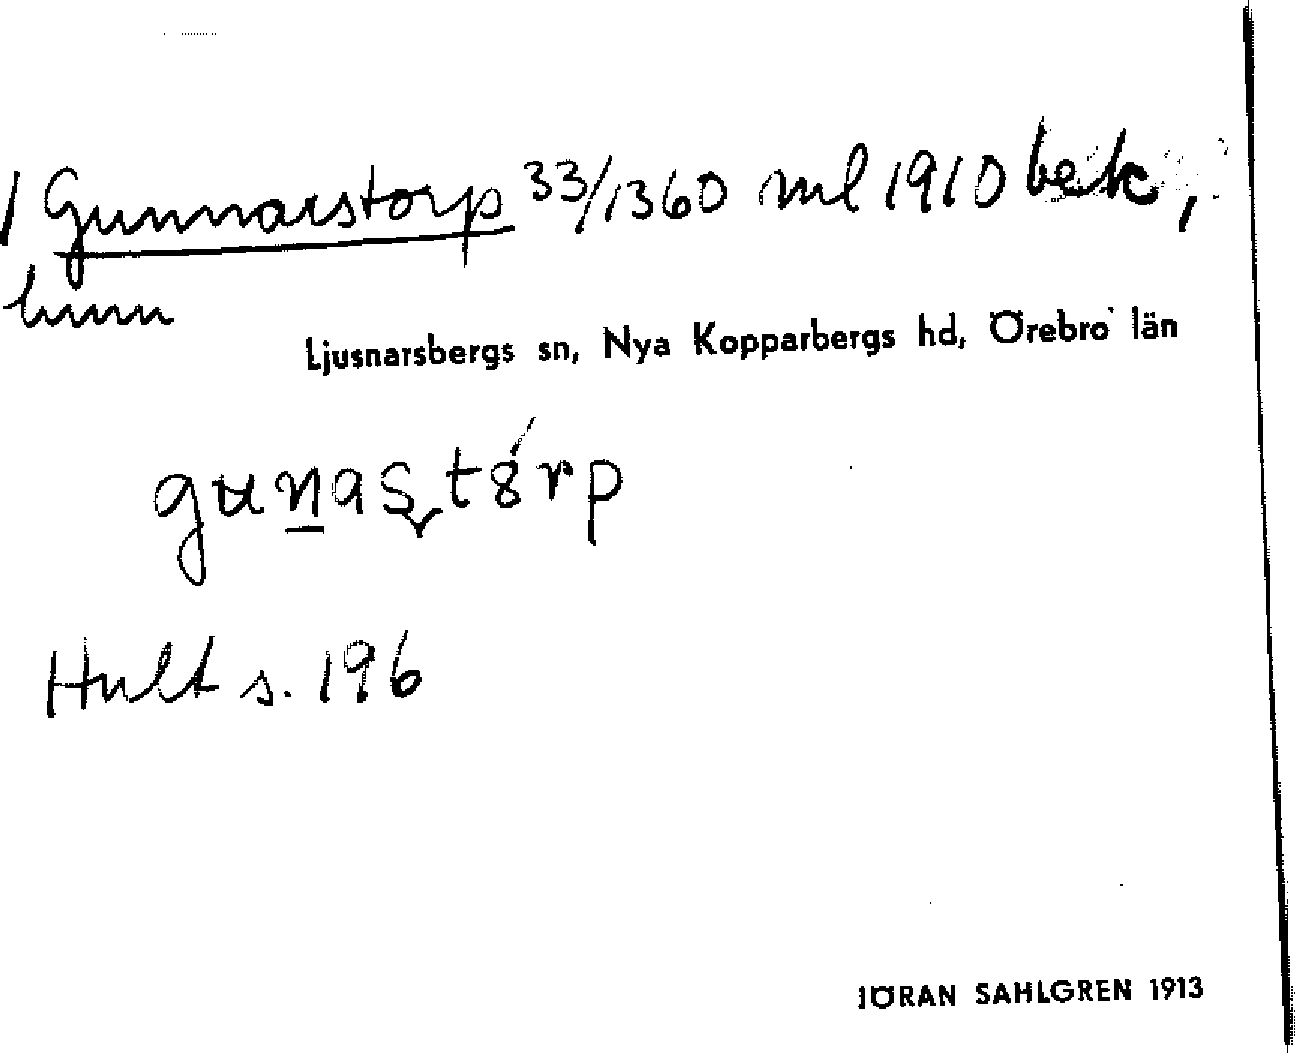 1 Gunnarstorp 33/1360 ml 1910 bek,
hmn
Ljusnarsbergs sn, Nya Kopparbergs hd, Örebro län
gunastörp
Hult s. 196
JÖRAN SAHLGREN 1913